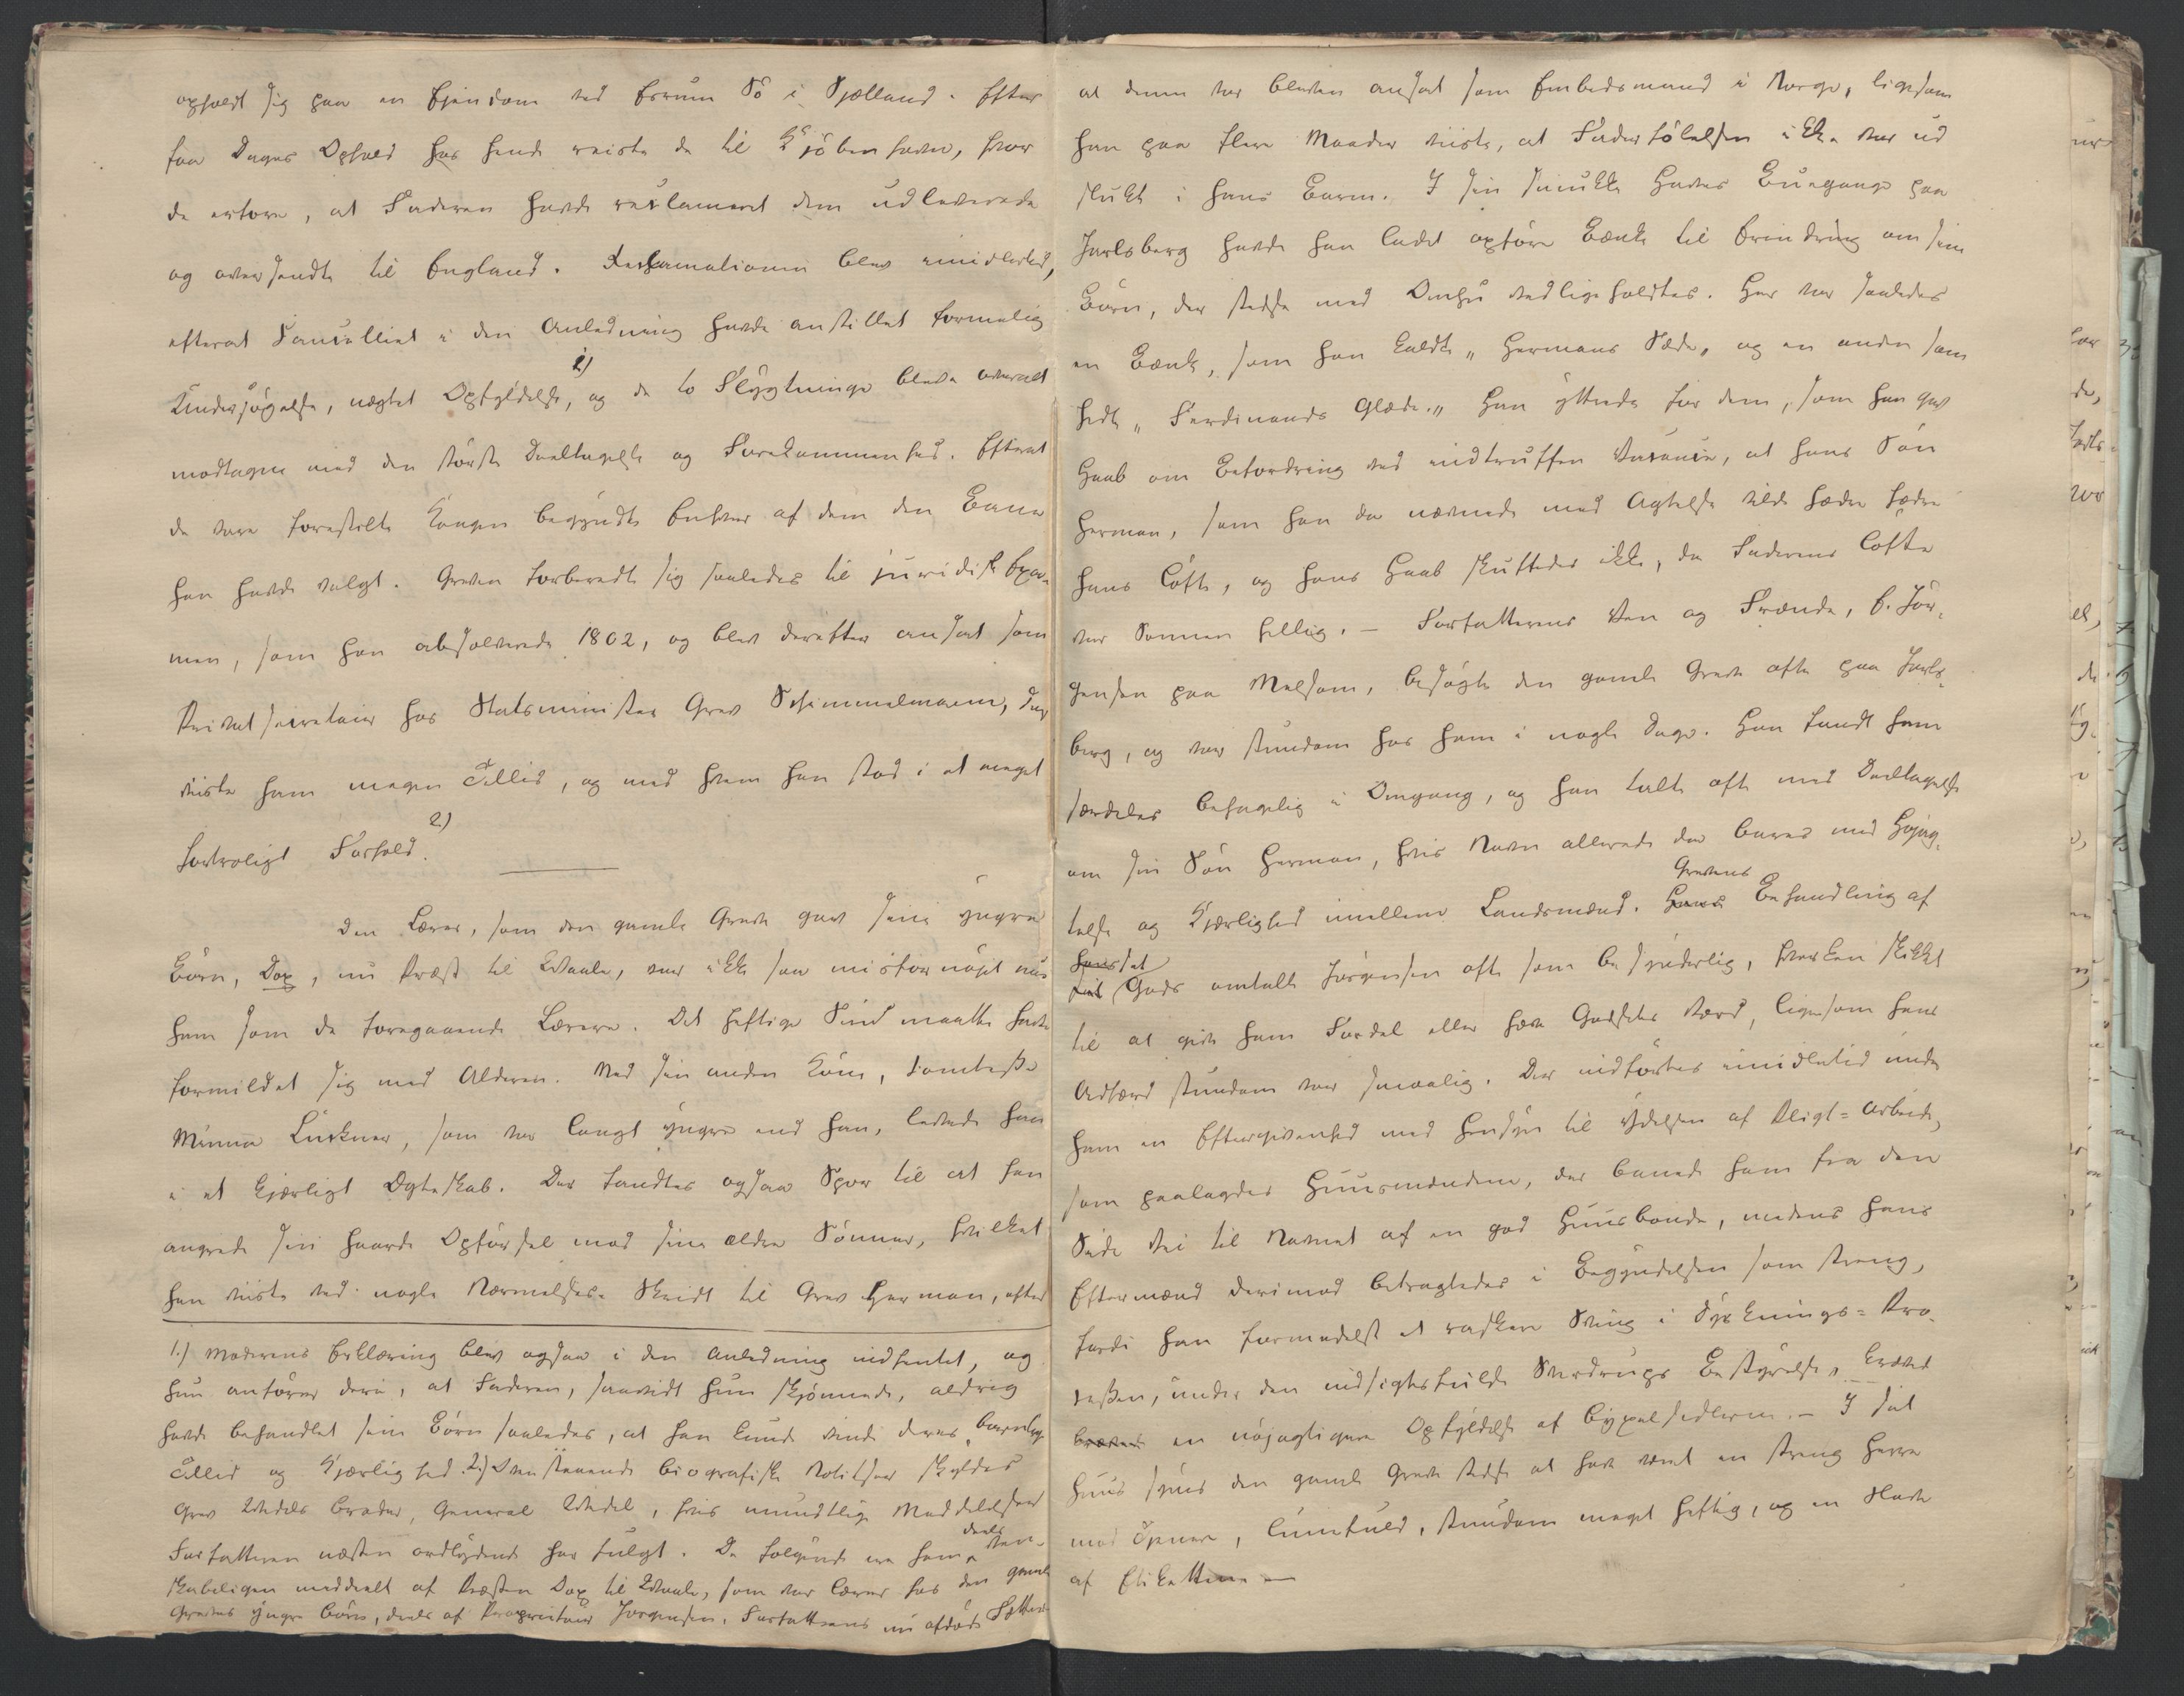 opholdt sig paa en Ejendom ved Esrum Sö i Sjælland. Efter
faa Dages Ophold hos hende reiste de til Kjöbenhavn, hvor
de erfore, at Faderen havde reclameret dem udleverede
og oversendte til England. Reclamationen blev imidlertid,
efterat Cancelliet i den Anledning havde anstillet formelig
Undersøgelse, nægtet Opfyldelse, 1) og de to Flygtninge bleve overalt
modtagne med den störste Deeltagelse og Forekommenhed. Efterat
de vare forestilte Kongen begyndte Enhver af dem den Bane
han havde valgt. Greven forberedte sig saaledes til juridisk Exa-
men, som han absolverede 1802, og blev derefter ansat som
Privatsecretair hos Statsminister Grev Schimmelmann, der
viste ham megen Tillid, og med hvem han stod i et meget
fortroligt Forhold. 2)
Den Lærer, som den gamle Greve gav sine yngre
Börn, Dop, nu Præst til Vaale, var ikke saa misfornöjet med
ham som de foregaaende Lærere. Det heftige Sind maatte have
formildet sig med Alderen. Med sin anden Kone, Comtesse
Minna Luckner, som var langt yngre end han, levede han
i et kjærligt Ægteskab. Der fandtes ogsaa Spor til at han
angrede sin haarde Opförsel mod sine ældre Sönner, hvilket
han viste ved nogle Nærmelses-Skridt til Grev Herman, efter
1.) Moderens Erklæring blev ogsaa i den Anledning indhentet, og
hun anförer deri, at Faderen, saavidt hun skjönnede, aldrig
havde behandlet sine Börn saaledes, at han kunde vinde deres barnlige
Tillid og Kjærlighed. 2) Ovenstaaende biografiske Notitser skyldes
Grev Wedels Broder, General Wedel, hvis mundtlige Meddelelser
Forfatteren næsten ordlydende har fulgt. De fölgende ere ham deels ven-
skabeligen meddeelt af Præsten Dop til Vaale, som var Lærer hos den gamle
Greves yngre Börn, deels af Proprietair Jörgensen, Forfatterens nu afdöde Fætter
at denne var bleven ansat som Embedsmand i Norge, ligesom
han paa flere Maader viste, at Faderfölelsen ikke var ud
slukt i hans Barm. I sin smukke Haves Buegange paa
Jarlsberg havde han ladet opföre Bænke til Erindring om sine
Börn, der stedse med Omhu vedligeholdtes. Her var saaledes
en Bænk, som han kaldte „Hermans Sæde„ og en anden som
hedte „Ferdinands Glæde.„ Han yttrede for dem, som han gav
Haab om Befordring ved indtruffen Vacance, at hans Sön
Herman, som han da nævnede med Agtelse vilde hædre
hans Löfte, og hans Haab skuffedes ikke, da Faderens Löfte
var Sönnen hellig. — Forfatterens Ven og Frænde, E. Jör-
gensen paa Melsom, besögte den gamle Greve ofte paa Jarls-
berg, og var stundom hos ham i nogle Dage. Han fandt ham
særdeles behagelig i Omgang, og han talte ofte med Deeltagelse
om sin Sön Herman, hvis Navn allerede da bares med Höjag-
telse og Kjærlighed imellem Landsmænd. Grevens Behandling af
sit Gods omtalte Jörgensen ofte som besynderlig, hverken skikket
til at give ham Fordel eller hæve Godsets Værd, ligesom hans
Adfærd stundom var smaalig. Der indförtes imidlertid under
ham en Eftergivenhed med Hensyn til Ydelsen af Pligt-Arbeide,
som paalagdes Huusmændene, der banede ham fra den
Side Vei til Navnet af en god Huusbonde, medens hans
Eftermand derimod betragtedes i Begyndelsen som streng,
fordi han formedelst et raskere Sving i Dyrknings-Pro-
cessen, under den indsigtsfulde Sverdrups Bestyrelse, krævede
en nöjagtigere Opfyldelse af Bygselsedlerne. — I sit
Huus synes den gamle Greve stedse at have været en streng Herre
mod Tyener, lunefuld, stundom meget heftig, og en Slave
af Etiketten —